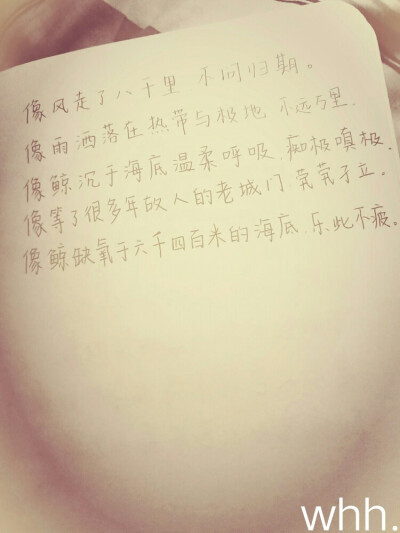 像风走了八千里 不问归期。
像雨洒落在热带与极地 不远万里.
像鲸沉于海底温柔呼吸.痴极嗔极.
像等了很多年故人的老城门.茕茕孑立.
像鲸缺氧于六千四百米的海底.乐此不疲。
whh.